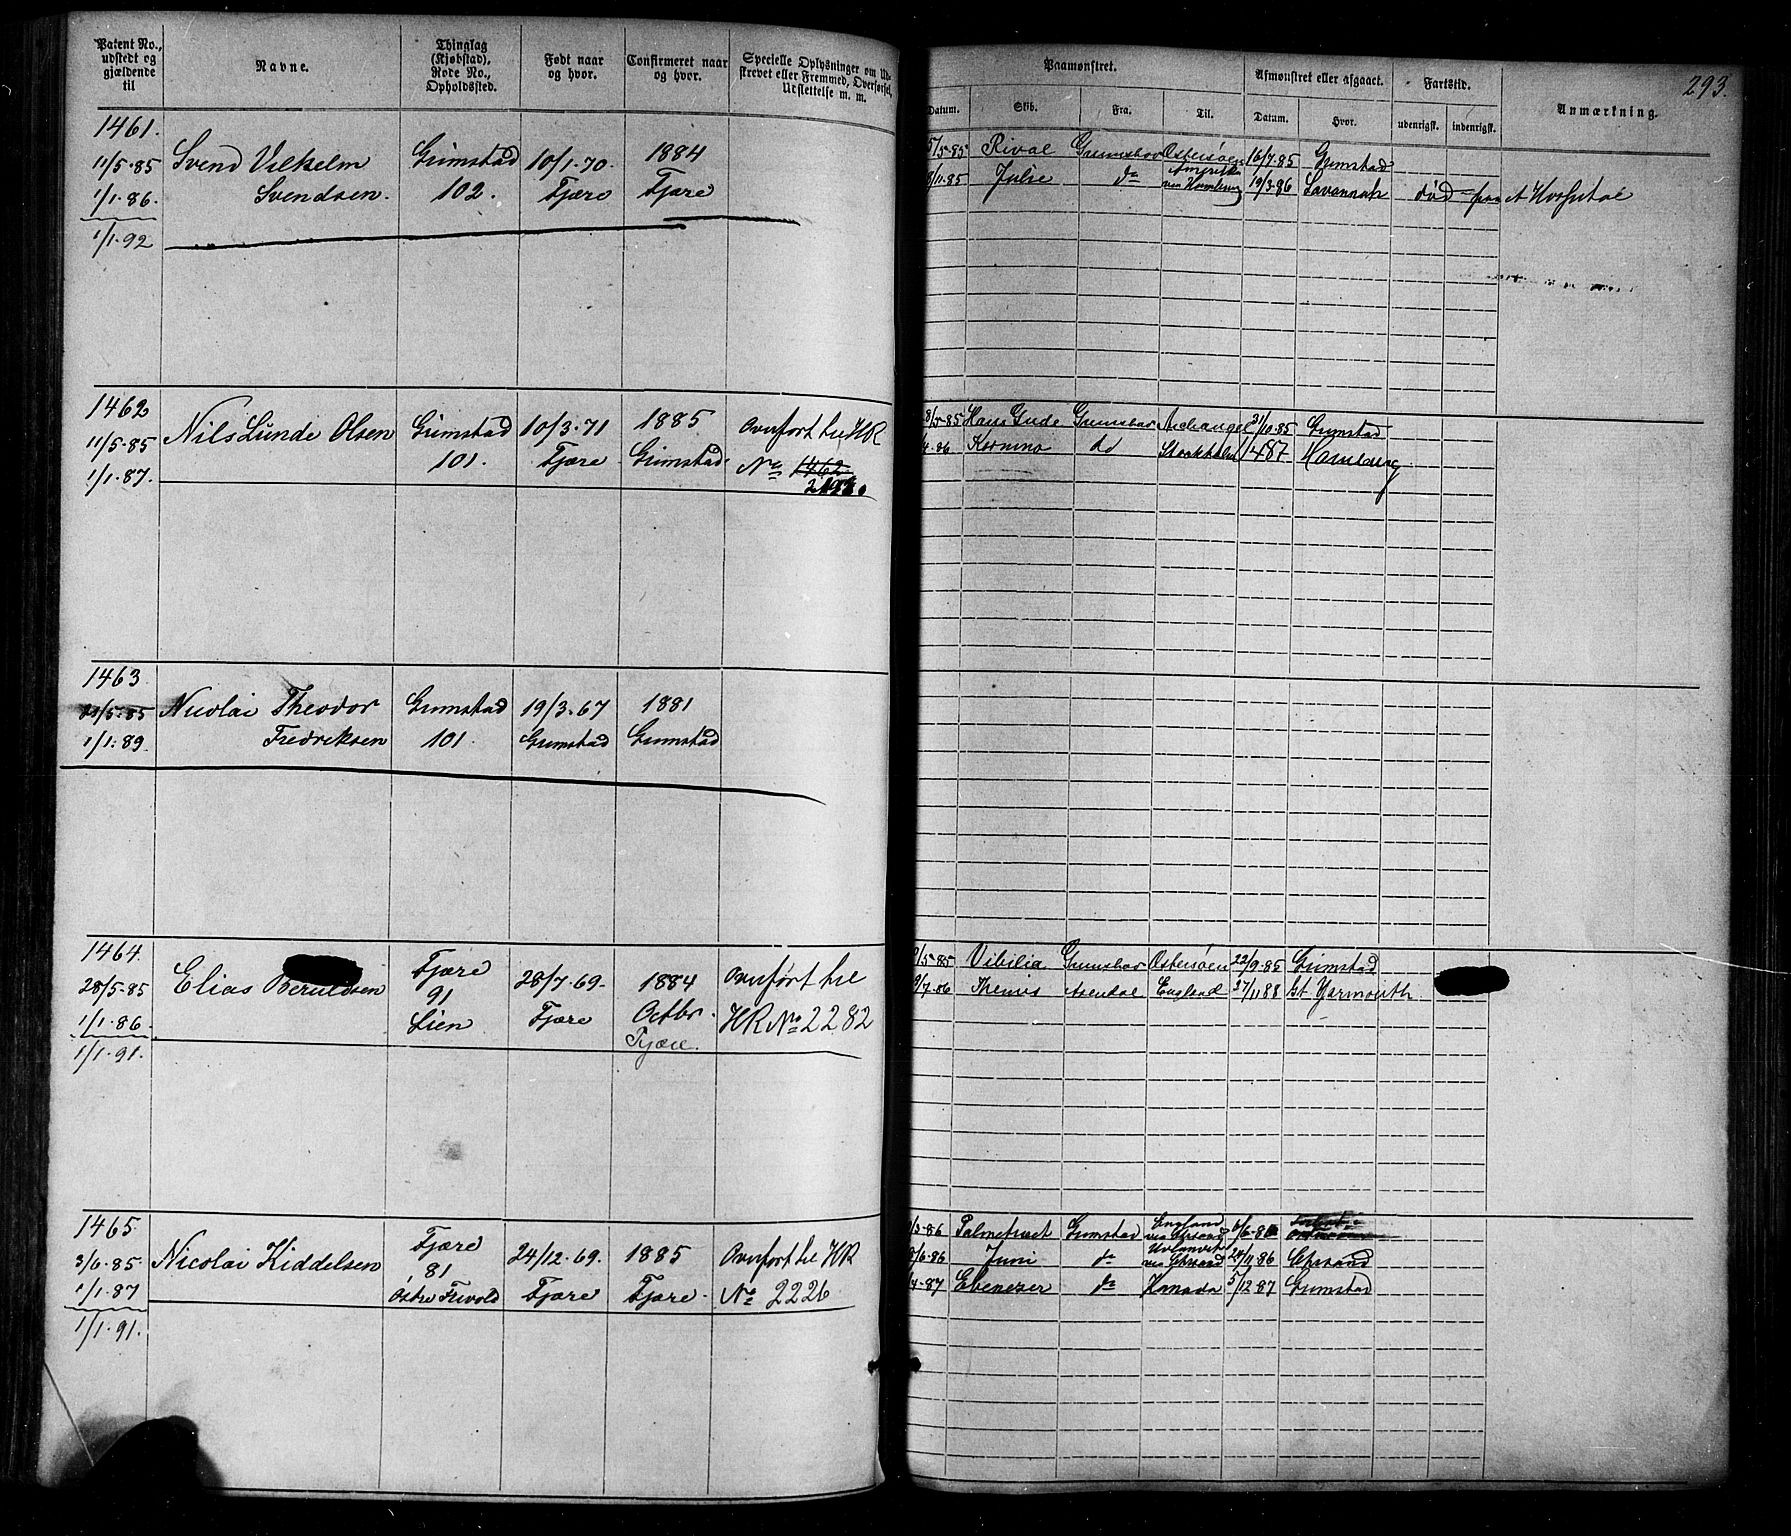 Patent No., udstedt og gjældende til
Navne.
Thinglag (Kjøbstad), Rode No., Opholdssted.
Født naar og hvor.
Confirmeret naar og hvor.
Specielle Oplysninger om Udskrevet eller Fremmed, Overførsel, Udslettelse m. m.
Paamønstret.
Datum. Skib. Fra. Til.
Afmønstret eller afgaaet.
Datum. Hvor.
Fartstid.
udenrigsk. indenrigsk.
Anmærkning.
293.
1461.
11/5.85 Svend Vilhelm Grimstad 10/1.70. 1884
1/1.86. Svendsen. 102. Fjære Fjære
1/1.92
5/5.85 Rival Østersøen 16/7.85 Grimstad
8/11.85 Julie do Amerika via Hamburg 19/3.86 Savannah død paa et Hospital
1462
11/5.85 Nils Lunde Olsen Grimstad 10/3.71 1885. Overført til HR
1/1.87. 101. Fjære Grimstad No 1462
8/5.85 Hans Gude Archangel 31/10.85 Grimstad
4.86 do Stockholm 1487 Hamburg
1463
21/5.85 Nicolai Theodor Grimstad 19/3.67 1881
1/1.89. Fredriksen 101. Grimstad Grimstad
1464
28/5.85 Elias Beruldsen Fjære 28/7.69. 1884 Overført til
1/1.86. 91 Fjære Octbr. HR No 2282
1/1.91. Lien Fjære.
/5.85 Vibilia Østersøen 22/9.85 Grimstad
9/7.86 Arendal England 27/11 88 Gt Yarmouth.
1465
3/6.85. Nicolai Kiddelsen Fjære 24/12.69. 1885 Overført til HR
1/1.87 81 Fjære Fjære. No 2226
1/1.91. Østre Frivold
/3.86 Palmetræet Grimstad England 6/6.86
/6.86 Juni do 24/11.86 Chrsand
/4.87 Ebeneser do Kanada 5/12.87 Grimstad